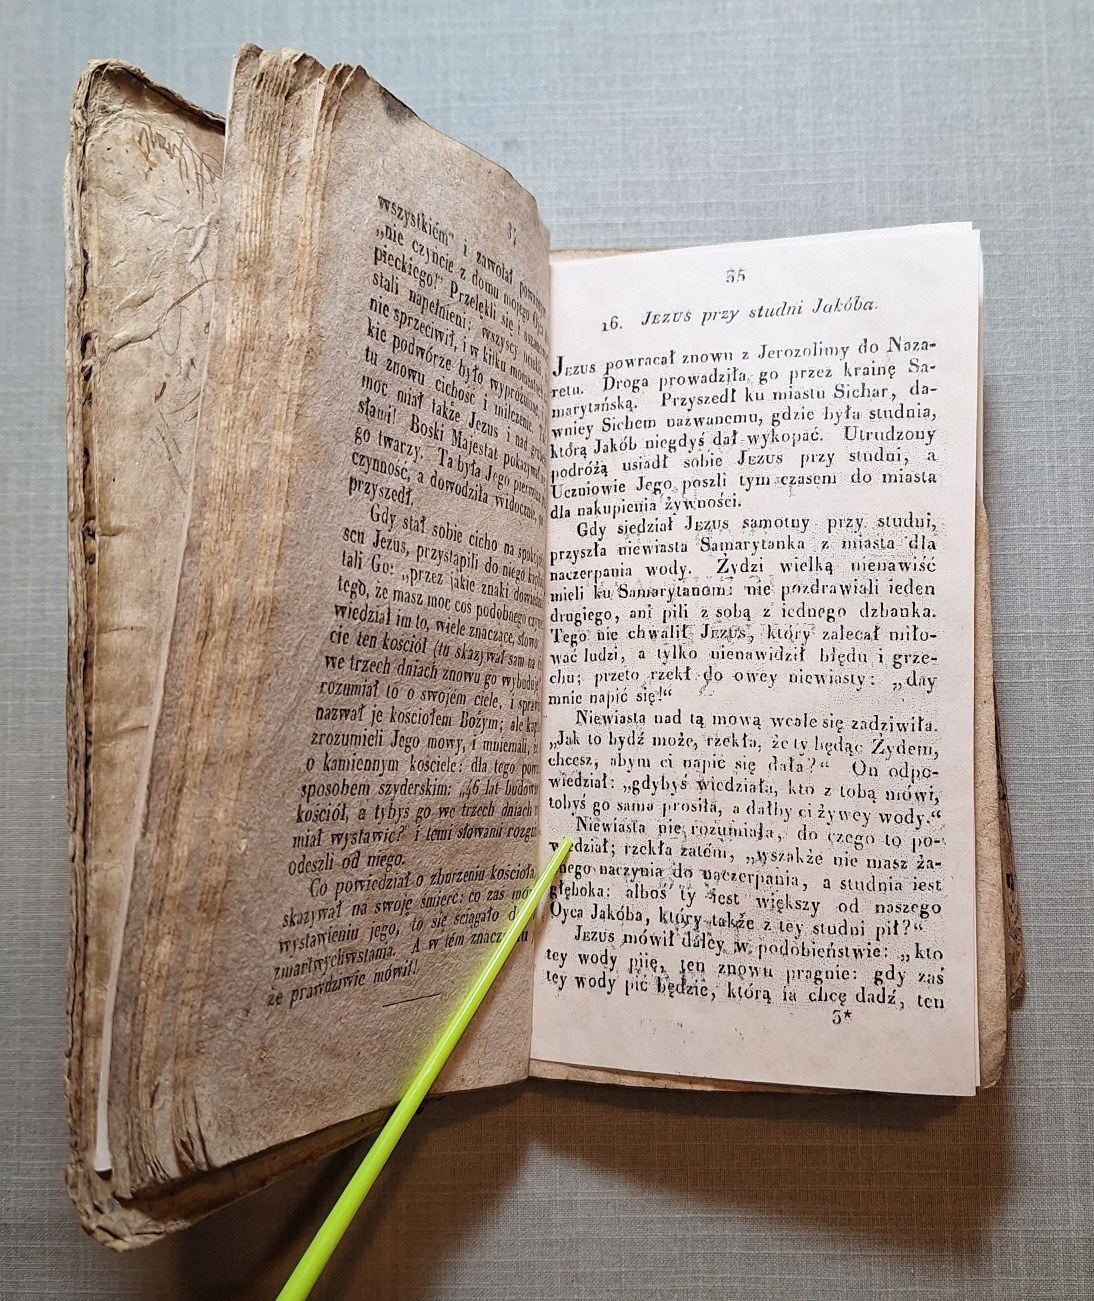 wszystkiém“ i zawołał
„nie czyńcie z domu mojego Oyca
pieckiego!“ Przelękli się i
stali napełnieni; wszyscy
nie sprzeciwił, i w kilku
kie podwórze było wypróżnione.
tu znowu cichość i milczenie.
moc miał także Jezus i nad
sławi! Boski Majestat
go twarzy. Ta była Jego pierwsza
czynność, a dowodziła widocznie,
przyszedł.
Gdy stał sobie cicho na
scu Jezus, przystąpili do niego
tali Go: „przez jakie znaki
tego, że masz moc coś podobnego
wiedział im to, wiele znaczące, słowo
cie ten kościół (tu skazywał sam na
we trzech dniach znowu go wybuduję
rozumiał to o swojém ciele, i
nazwał je kościołem Bożym; ale
zrozumieli Jego mowy, i mniemali, że
o kamiennym kościele: dla tego
sposobem szyderskim: „46 lat
kościół, a tybyś go we trzech dniach
miał wystawić?“ i temi słowami
odeszli od niego.
Co powiedział o zburzeniu kościoła,
skazywał na swoję śmierć: co zaś
wystawieniu jego, to się ściągało
zmartwychwstania. A w tém
że prawdziwie mówił!
35
16. Jezus przy studni Jakóba.
Jezus powracał znowu z Jerozolimy do Naza-
retu. Droga prowadziła go przez krainę Sa-
marytańską. Przyszedł ku miastu Sichar, da-
wniey Sichem nazwanemu, gdzie była studnia,
którą Jakób niegdyś dał wykopać. Utrudzony
podróżą usiadł sobie Jezus przy studni, a
Uczniowie Jego poszli tym czasem do miasta
dla nakupienia żywności.
Gdy siedział Jezus samotny przy studni,
przyszła niewiasta Samarytanka z miasta dla
naczerpania wody. Żydzi wielką nienawiść
mieli ku Samarytanom: nie pozdrawiali ieden
drugiego, ani pili z sobą z iednego dzbanka.
Tego nie chwalił Jezus, który zalecał miło-
wać ludzi, a tylko nienawidził błędu i grze-
chu; przeto rzekł do owey niewiasty: „day
mnie napić się!“
Niewiasta nad tą mową wcale się zadziwiła.
„Jak to bydź może, rzekła, że ty będąc Żydem,
chcesz, abym ci napić się dała?“ On odpo-
wiedział: „gdybyś wiedziała, kto z tobą mówi,
tobyś go sama prosiła, a dałby ci żywey wody.“
Niewiasta nie rozumiała, do czego to po-
wiedział; rzekła zatém, „wszakże nie masz ża-
dnego naczynia do naczerpania, a studnia iest
głęboka: alboś ty iest większy od naszego
Oyca Jakóba, który także z tey studni pił?“
Jezus mówił daley w podobieństwie: „kto
tey wody piie, ten znowu pragnie: gdy zaś
tey wody pić będzie, którą ia chcę dadź, ten
3*